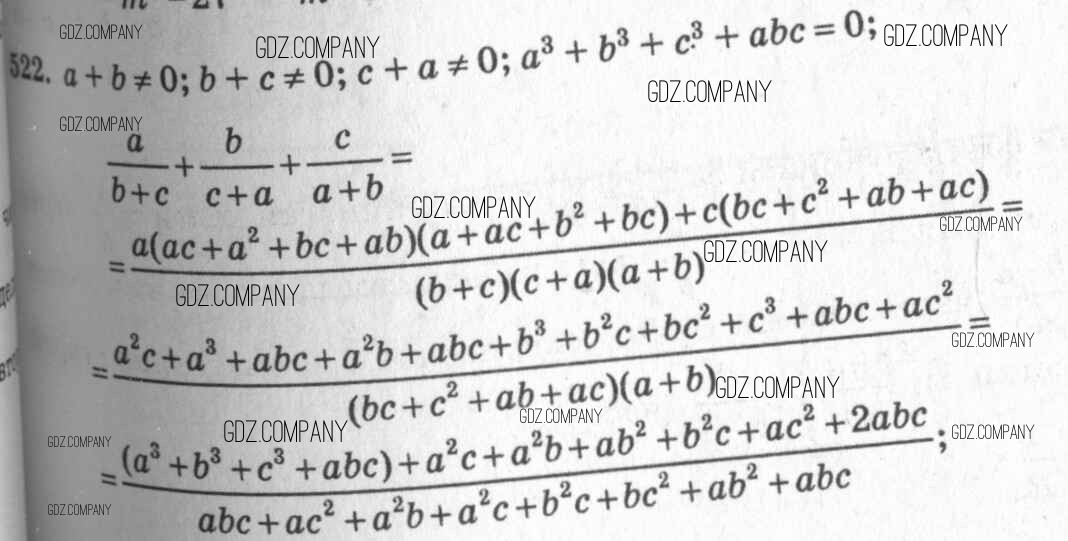 GDZ.COMPANY
GDZ.COMPANY
GDZ.COMPANY
522. a + b ≠ 0; b + c ≠ 0; c + a ≠ 0; a³ + b³ + c³ + abc = 0;
GDZ.COMPANY
GDZ.COMPANY
a/(b+c) + b/(c+a) + c/(a+b) =
GDZ.COMPANY
= (a(ac + a² + bc + ab)(a + ac + b² + bc) + c(bc + c² + ab + ac))/((b + c)(c + a)(a + b)) =
GDZ.COMPANY
GDZ.COMPANY
GDZ.COMPANY
= (a²c + a³ + abc + a²b + abc + b³ + b²c + bc² + c³ + abc + ac²)/((bc + c² + ab + ac)(a + b)) =
GDZ.COMPANY
GDZ.COMPANY
GDZ.COMPANY
GDZ.COMPANY
GDZ.COMPANY
GDZ.COMPANY
= ((a³ + b³ + c³ + abc) + a²c + a²b + ab² + b²c + ac² + 2abc)/(abc + ac² + a²b + a²c + b²c + bc² + ab² + abc);
GDZ.COMPANY